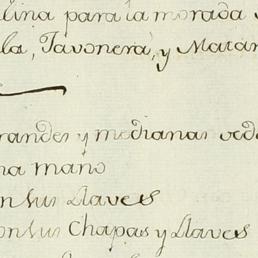 lina para la morada
la, Favonera, y Matan
randes y medianas
na mano
on sus Llaves
on sus Chapas y Llaves